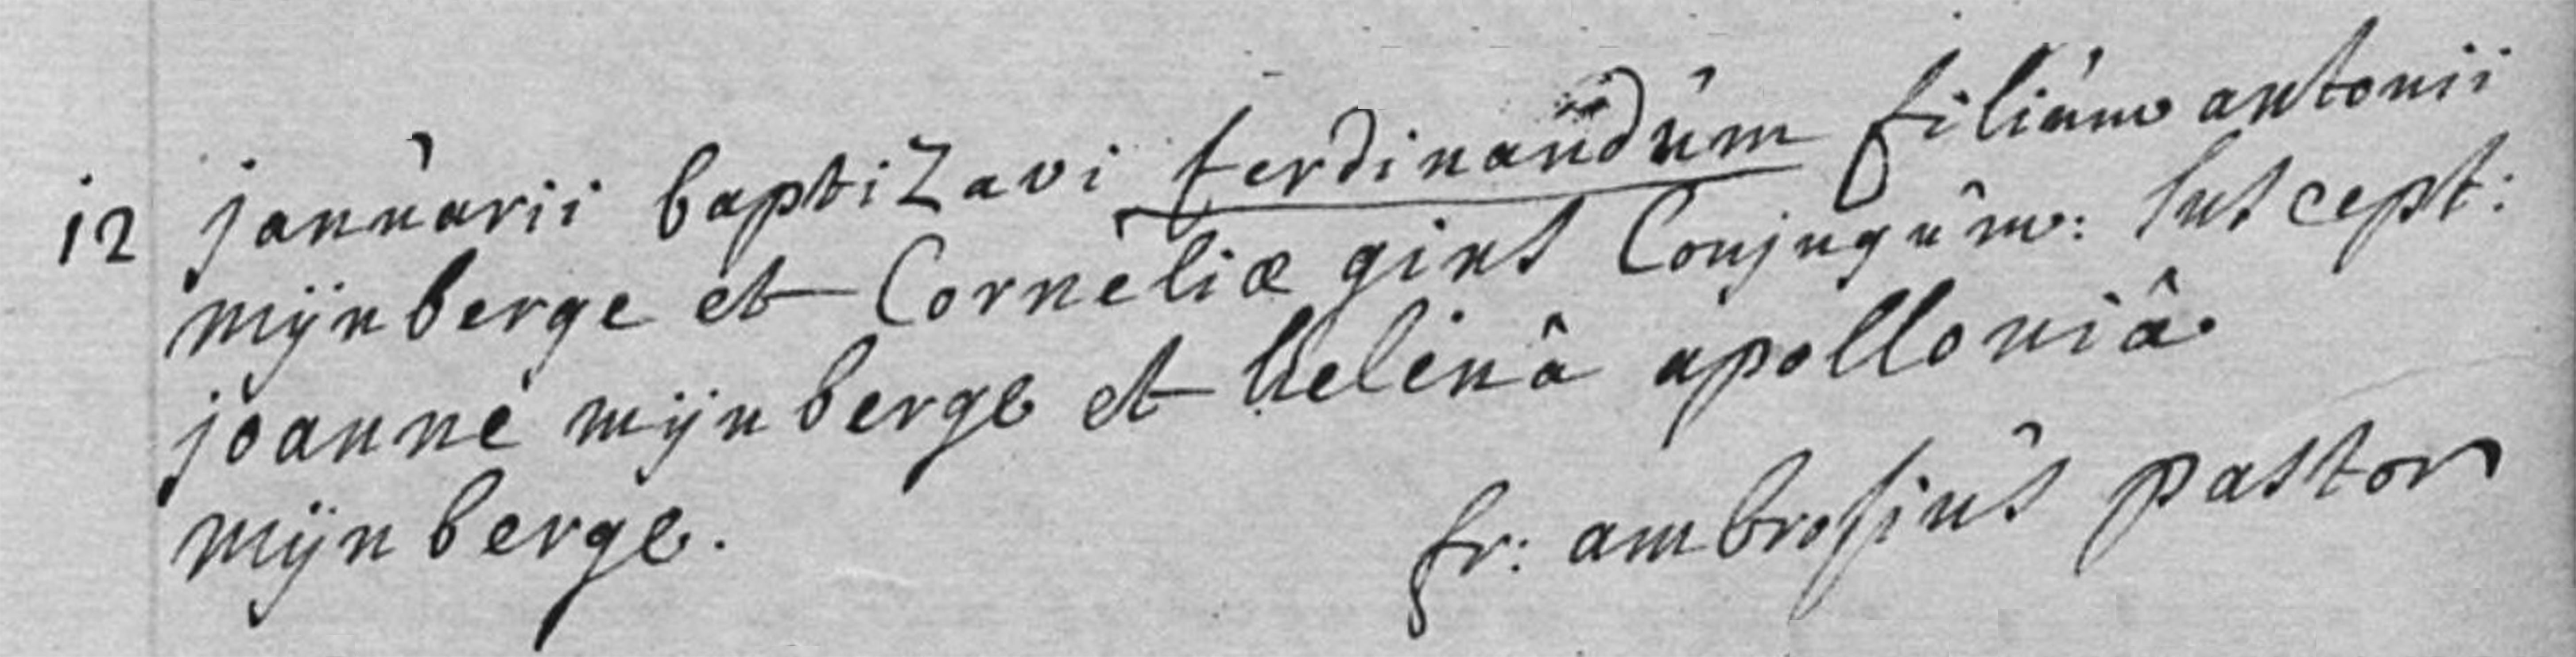 12 januarii baptizavi ferdinandum filium antonii
mijnberge et Corneliæ gins Conjugum: suscept:
joanne mijnberge et helenâ apolloniâ
mijnberge.
fr: ambrosius pastor